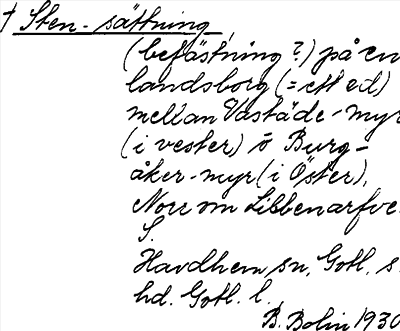 † Sten-sättning,
(befästning?) på en
landsborg (= ett ed)
mellan Vastäde-myr
(i vester) o Burg-
åker-myr (i Öster),
Norr om Libbenarfve
S.
Havdhem sn, Gotl. s.
hd. Gotl. l.
B. Bolin 1930